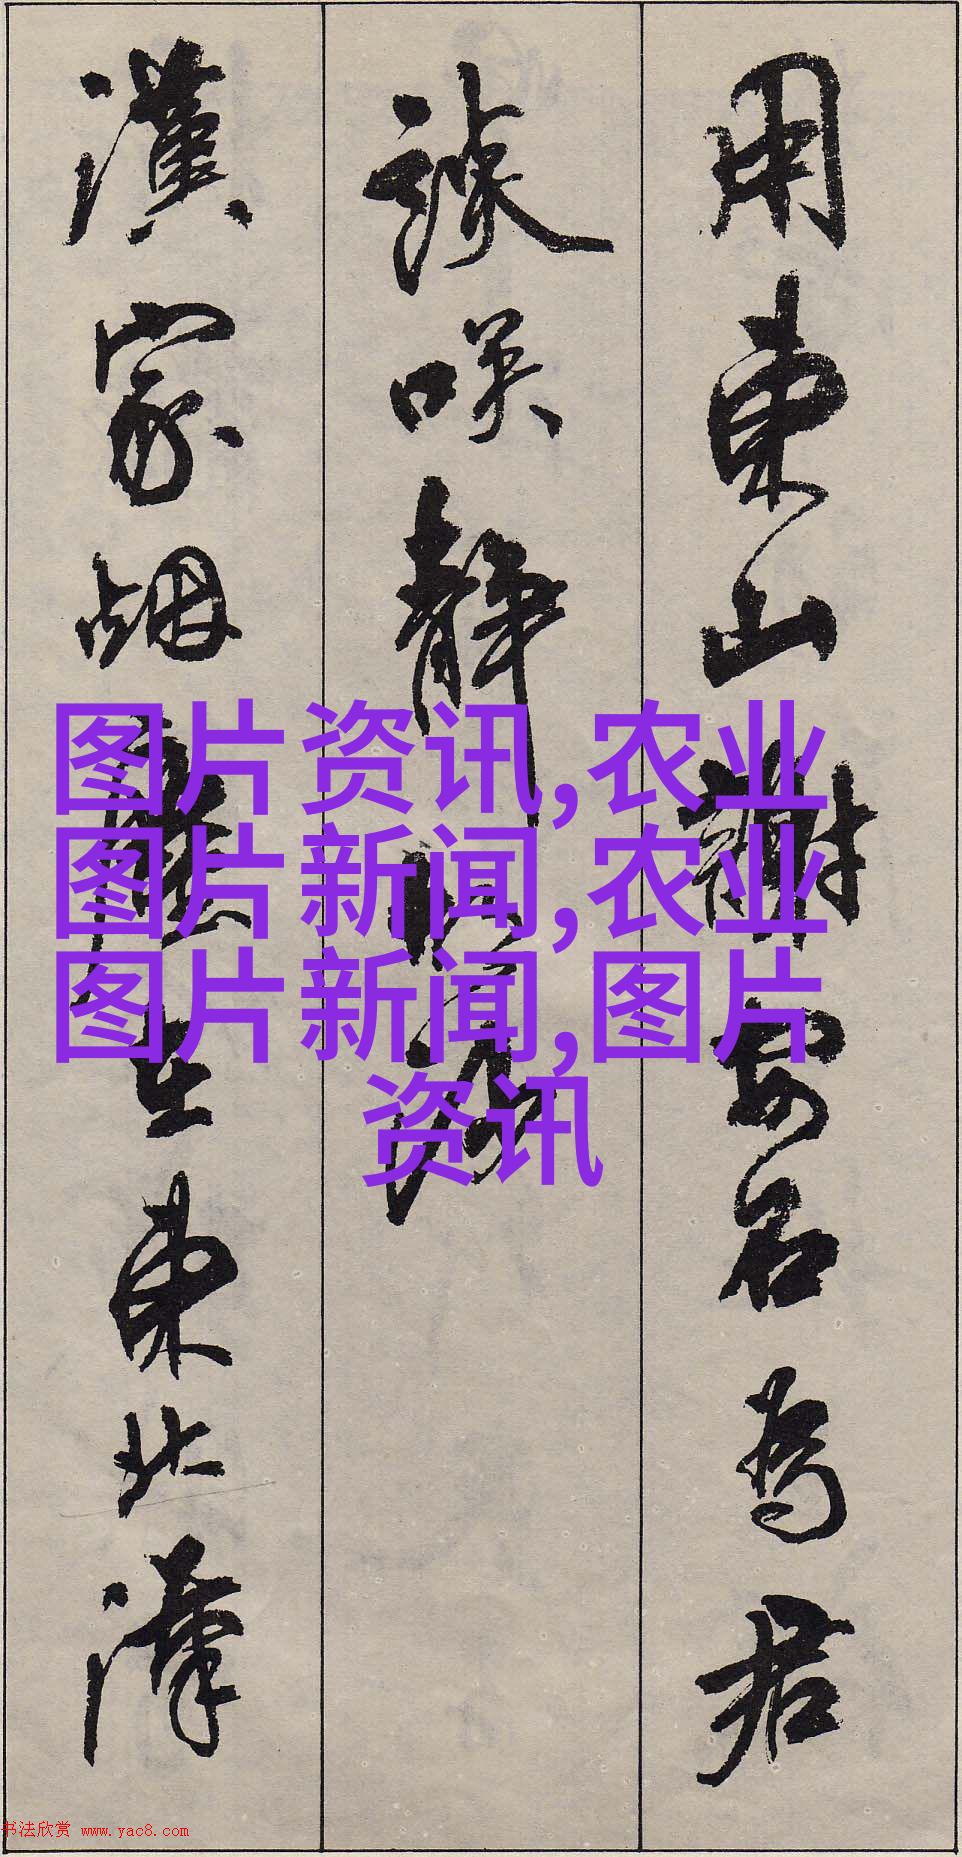 用東山謝安石為君
談咲靜胡沙
漢家烟塵在東北漢
图片资讯,农业
图片新闻,农业
图片新闻,图片
资讯
书法欣赏 www.yac8.com